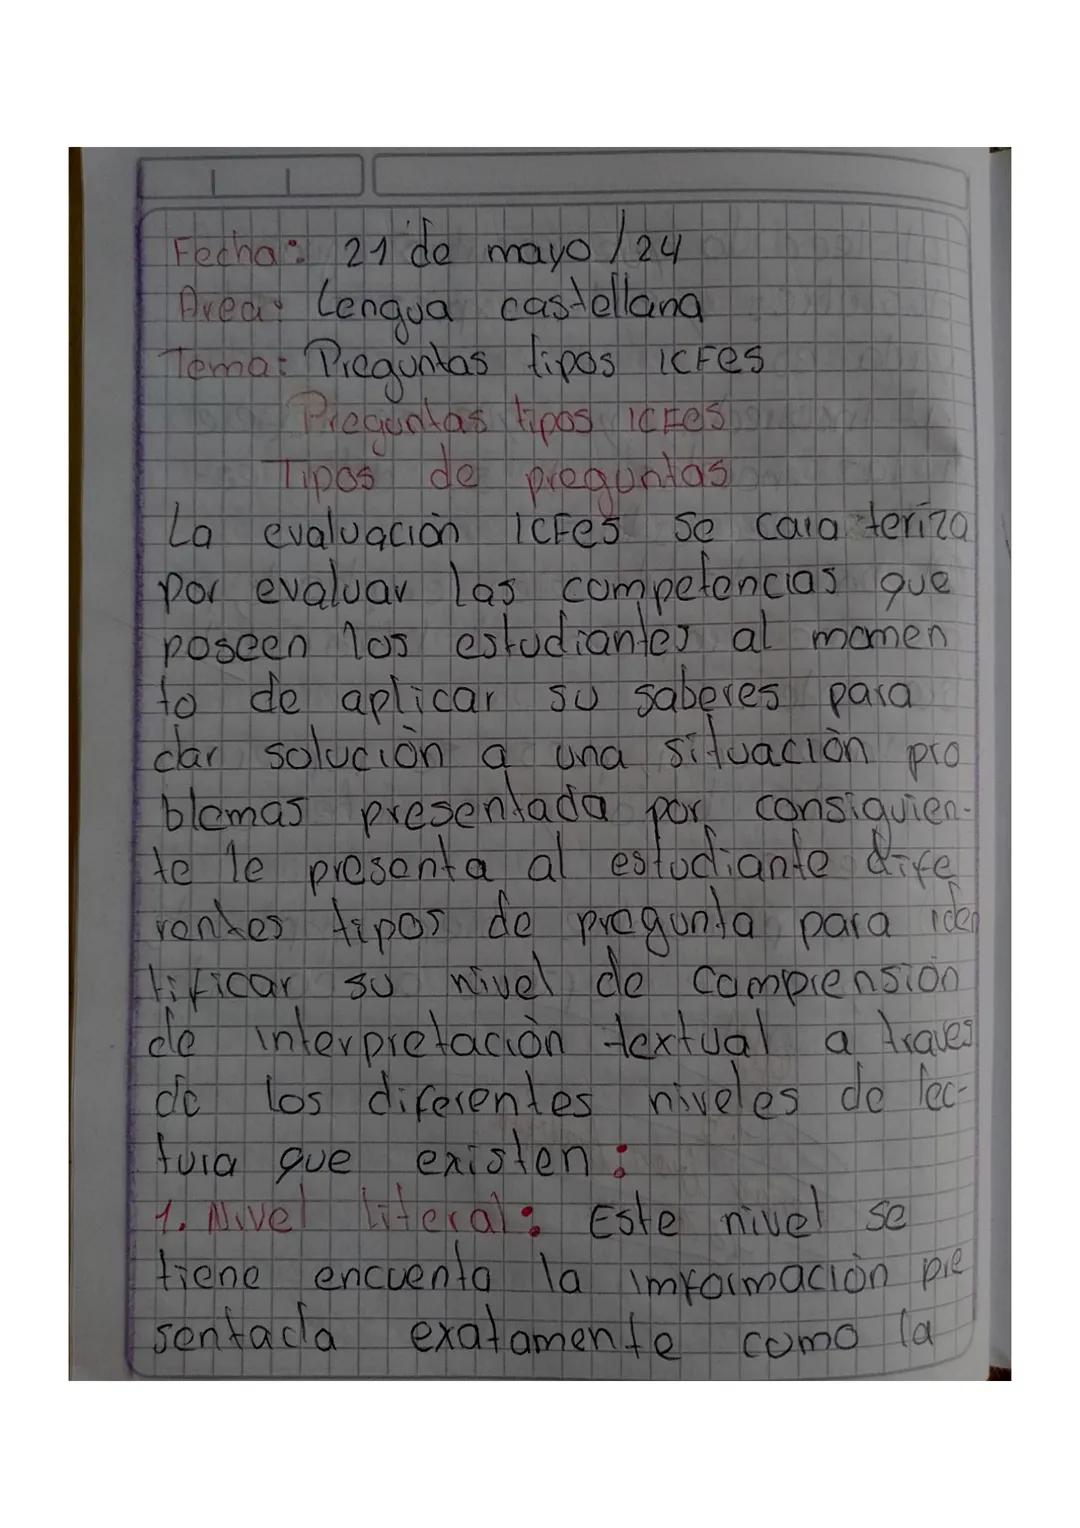 Fecha: 21 de mayo /24
Area: Lengua castellana
Tema: Preguntas tipos ICFes
Preguntas tipos ICFes
Tipos de preguntas
La evaluaciòn ICFes se cara teriza
por evaluar las competencias que
poseen los estudiantes al momen
to de aplicar su saberes para
dar soluciòn a una situaciòn pro
blemas presentada por consiguien-
te le presenta al estudiante dife
rentes tipos de pregunta para iden
tificar su nivel de comprensión
de interpretaciòn textual a traves
de los diferentes niveles de lec-
tura que existen:
1. Nivel literal: Este nivel se
tiene encuenta la imformaciòn pre
sentada exatamente como la